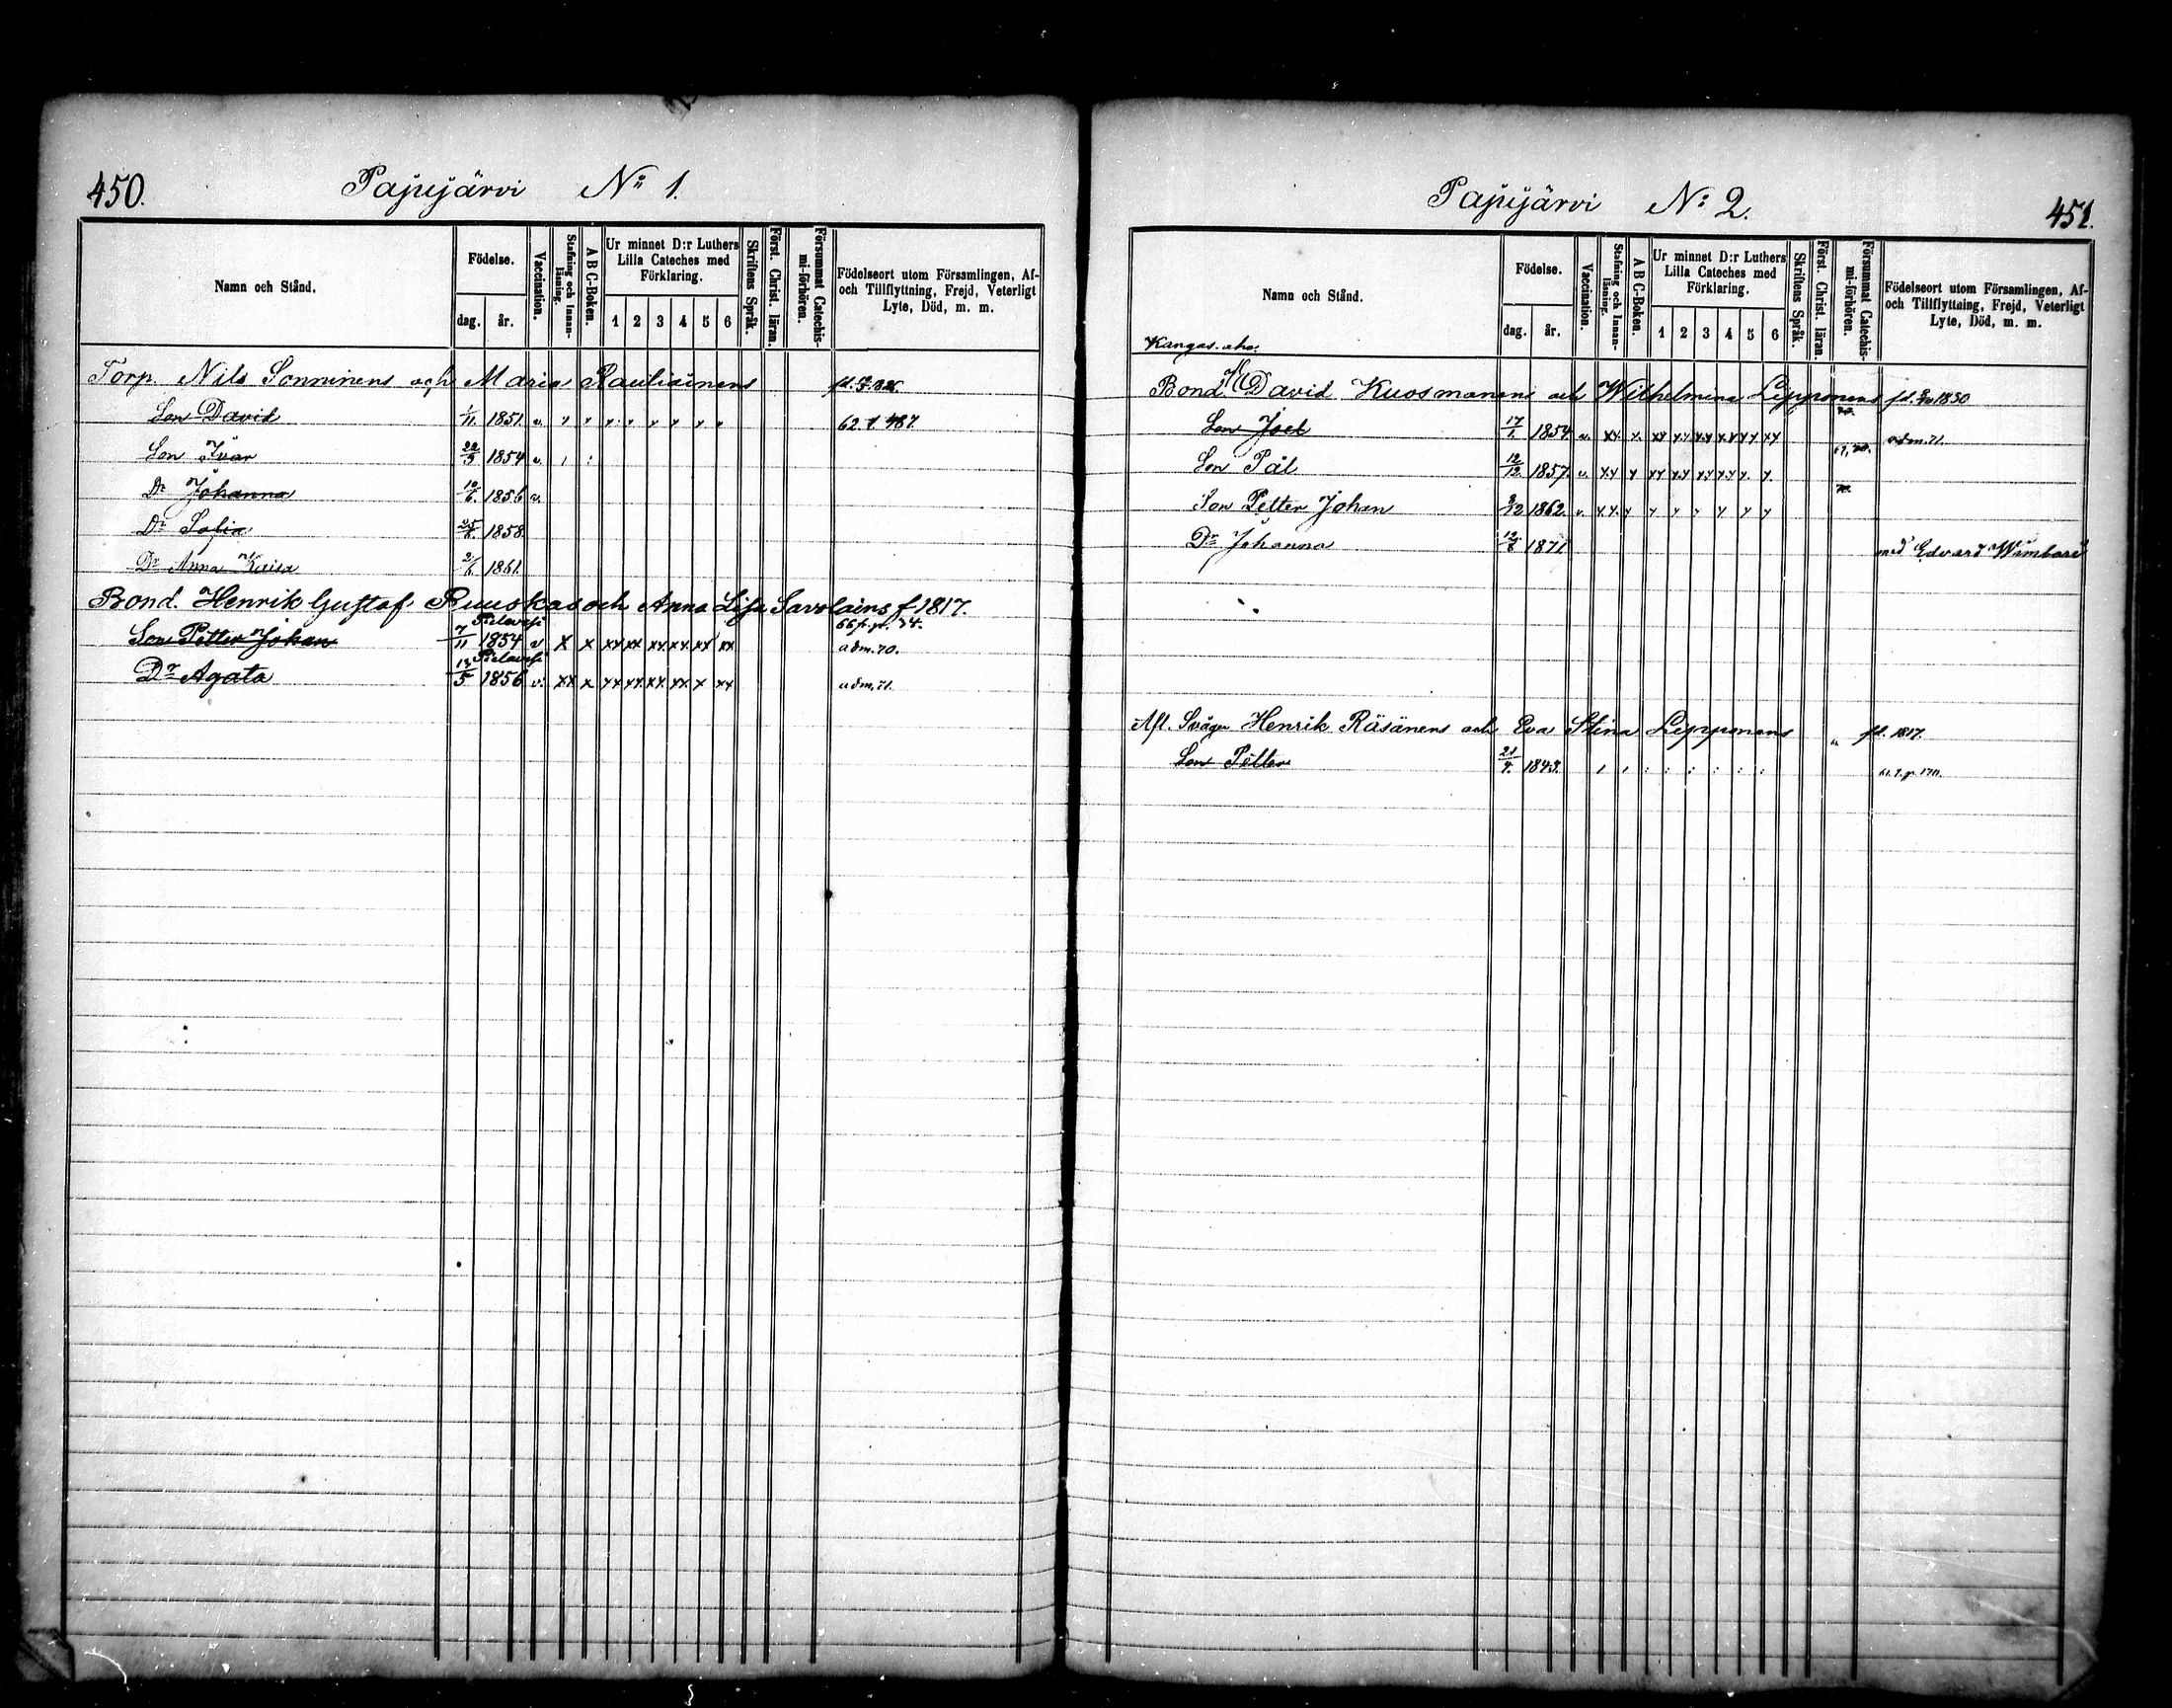 450. Pajujärvi No 1.
Namn och Stånd. Födelse. dag. år. Vaccination. Stafning och Innanläsning. A B C-Boken. Ur minnet D:r Luthers Lilla Cateches med Förklaring. 1 2 3 4 5 6 Skriftens Språk. Först. Christ. läran. Försummat Catechismi-förhören. Födelseort utom Församlingen, Af- och Tillflyttning, Frejd, Veterligt Lyte, Död, m. m.
Torp. Nils Sonninens och Maria Rautiainens
Son David 1/11 1851. v. 62. f 487
Son Ivar 22/3 1854 v.
Dr Johanna 10/6. 1856 v.
Dr Sofia 1858.
Dr Anna Kaisa 2/6 1861.
Bond. Henrik Gustaf Ruuskas och Anna Lisa Savolains f 1817.
Pielavesi 66 f. p. 34.
Son Petter Johan 7/11 1854 v x x xx xx xx xx xx xx adm. 70.
Pielavesi
Dr Agata 13/5 1856 v. xx x xx xx xx xx x xx adm. 71.
Pajujärvi No 2. 451.
Namn och Stånd. Födelse. dag. år. Vaccination. Stafning och Innanläsning. A B C-Boken. Ur minnet D:r Luthers Lilla Cateches med Förklaring. 1 2 3 4 5 6 Skriftens Språk. Först. Christ. läran. Försummat Catechismi-förhören. Födelseort utom Församlingen, Af- och Tillflyttning, Frejd, Veterligt Lyte, Död, m. m.
Kangas-aho.
Bond. David Kuosmanens och Wilhelmina Lipponens 1830
Son Joel 17/1. 1854. v. xx x. xx xx xx xx xx xx adm. 71.
Son Pål 12/12 1857. v. xx x xx xx xx xx x. x.
Son Petter Johan 1862. v. xx. x x x x x x x
Dr Johanna 12/8 1871 med Edvard Wimbari
Afl. Svåger Henrik Räsänens och Eva Stina Lipponens fd. 1817.
Son Petter 21/4. 1843.